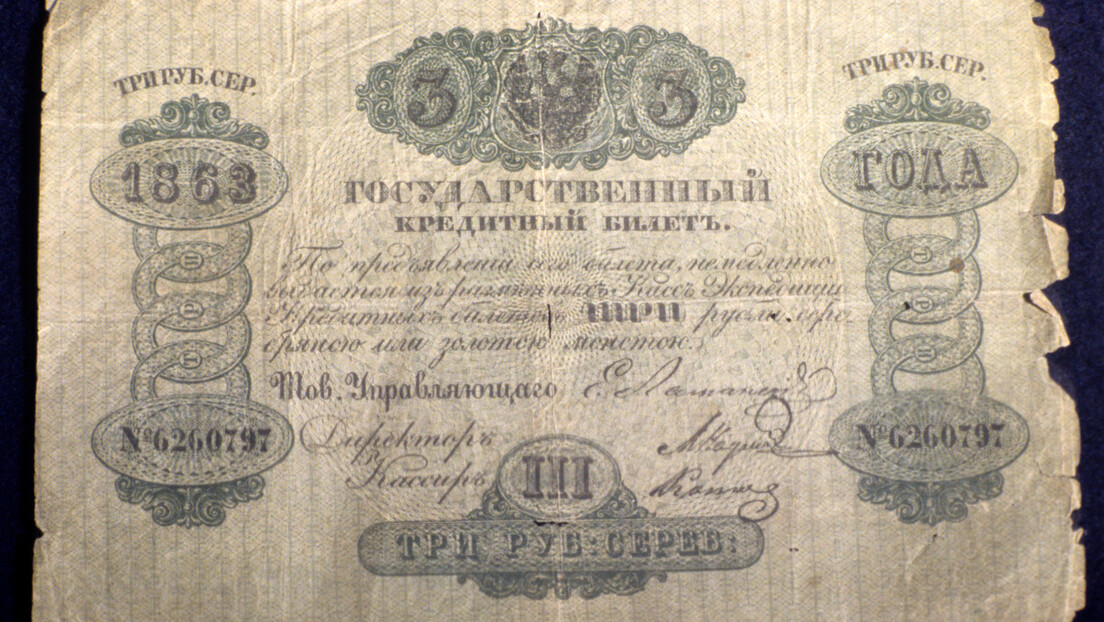 ТРИ РУБ. СЕР.
3 3
ТРИ РУБ. СЕР.
1863
ГОДА
ГОСУДАРСТВЕННЫЙ
КРЕДИТНЫЙ БИЛЕТЪ.
По предъявленіи сего билета, немедленно
выдается изъ размѣнныхъ Кассъ Экспедиціи
Кредитныхъ билетовъ ТРИ рубли сере
бряною или золотою монетою.
Тов. Управляющаго
№6260797
Директоръ
№6260797
Кассиръ
III
ТРИ РУБ: СЕРЕБ: